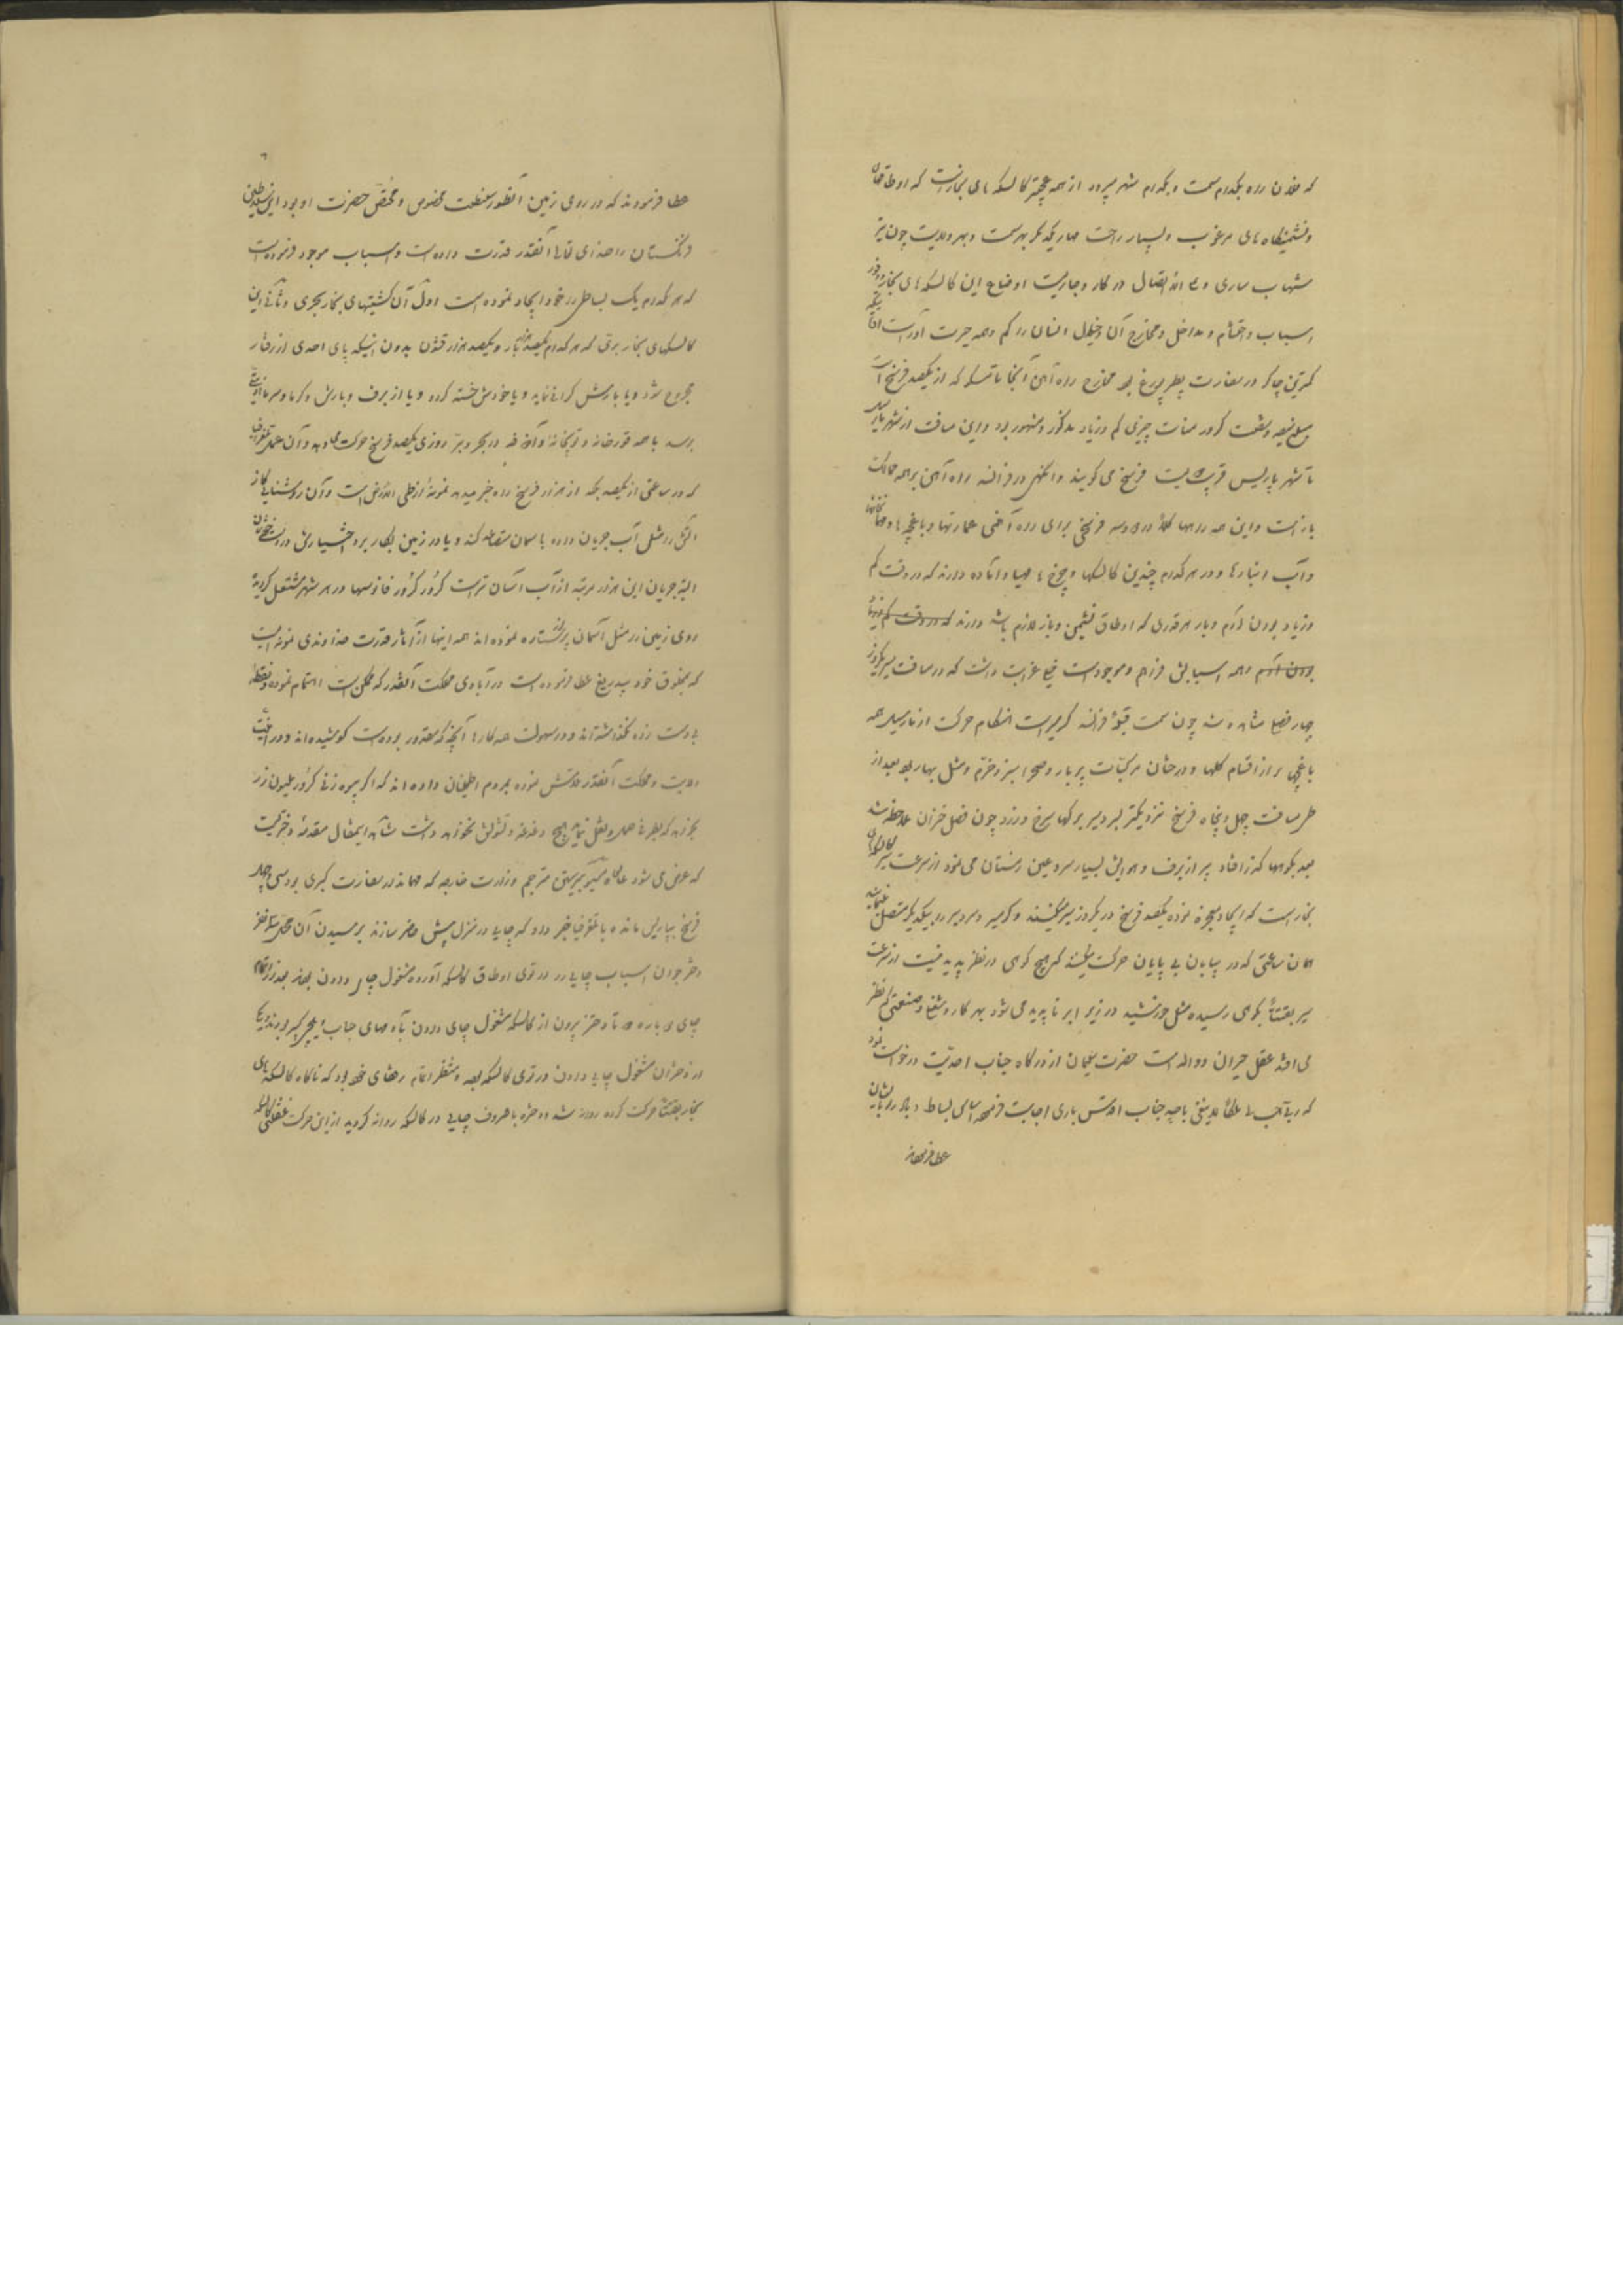 که فلان راه بکدام سمت و بکدام شهر میرود از همه عجبتر کالسکه های بخار است که اوطاقهای
و نشیمنگاه های مرغوب و بسیار راحت بهر سمت و بهر ولایت چون تیر
شهاب ساری و علی الاتصال در کار و جاریست اوضاع این کالسکه های بخار و وفور
اسباب و احتشام و مداخل و مخارج آن و خیال انسان را گم و همه حیرت آور است
کمترین چاکر در سفارت پطربورغ بود مخارج راه آهن آنجا تا مسکو که از یکصد فرسخ است
مبلغ سیصد و شصت کرور منات چیزی کم و زیاد مذکور و مشهور بود و این مسافت از شهر مارسیل
تا شهر پاریس قریب دویست فرسخ می گویند و همچنین در فرانسه راه آهن بر همه ممالک
باز است و این همه راهها کلا در دو سه فرسخی برای راه آهنی عمارتها و باغچه ها و مهمانخانها
و آب انبارها و در هر کدام چندین کالسکها و چرخ ها مهیا و آماده دارند که در وقت کم
و زیاد بودن آدم و بار هر قدری که اوطاق نشیمن و بار لازم باشد دارند که در وقت کم و زیاد
بودن آدم و همه اسبابش فراهم و موجود است خیلی غرابت داشت که در مسافت سیر یکروز
چهار فصل مشاهده شد چون سمت قبله فرانسه گرمسیر است هنگام حرکت از مارسیل همه
باغچها پر از اقسام گلها و درختان مرکبات پر بار و صحرا سبز و خرم و مثل بهار بود بعد از
طی مسافت چهل و پنجاه فرسخ نزدیکتر بسردسیر برگها سرخ و زرد چون فصل خزان ملاحظه شد
بعد بکوهها گذر افتاد پر از برف و هوایش بسیار سرد عین زمستان می نمود از سرعت سیر کالسکهای
بخار است که ایجاد معجزه نموده یکصد فرسخ در یکروز سیر میکنند و گرمسیر و سردسیر را بیکدیگر متصل
همان ساعتی که در بیابان بی پایان حرکت میکنند که هیچ کوهی در نظر پدید نیست از سرعت
سیر بغتتا بکوهی رسیده مثل خورشید در زیر ابر ناپدید می شود بهر کار و شغل و صنعتی که نظر
می افتد عقل حیران و واله است حضرت سلیمان از درگاه جناب احدیت درخواست نمود
که رب هب لی ملکا لا ینبغی باحد جناب اقدس باری اجابت فرموده بساط و بالا را بایشان
عطا فرمودند
عطا فرمودند که در روی زمین آنطور سلطنت مخصوص و مختص حضرت او بود این سلاطین
فرنگستان را خدای تعالی آنقدر قدرت داده است و اسباب موجود فرموده است
که هر کدام یک بساطی در خود ایجاد نموده است اول آن کشتیهای بخار بحری و ثانی این
کالسکهای بخار برقی که هر کدام یکصد هزار بار و یکصد هزار قشون بدون اینکه پای احدی از رفتار
مجروح شود و یا بارش گرانی نماید و یا خودش خسته گردد و یا از برف و بارش و گرما و سرما اذیتی
برسد با همه قورخانه و توپخانه و آذوقه در بحر و بر روزی یکصد فرسخ حرکت میدهد و آن عمل تلغراف
که در ساعتی از یکصد بلکه از هزار فرسخ راه خبر میدهد نمونه از طی الارض است و آن روشنایی گاز
آتش را مثل آب جریان داده بآسمان متصاعد کند و یا در زمین بکار برد اختیارش در دست خودشان
البته جریان این هزار مرتبه از آب آسان تر است کرور کرور فانوسها در هر شهر مشتعل گردیده
روی زمین را مثل آسمان پر از ستاره نموده اند همه اینها از آثار قدرت خداوندی نمونه ایست
که بمخلوق خود بیدریغ عطا فرموده است در آبادی مملکت آنقدر که ممکن است اهتمام نموده و نقطه
بی دست زده نگذاشته اند و در سهولت همه کارها آنچه که مقدور بوده است کوشیده اند و در امنیت
ولایت و مملکت آنقدر تلاش نموده بمردم اطمینان داده اند که اگر بیوه زنی کرور ملیون زر
بجزانه که بطرفی حمل و نقل نماید هیچ دغدغه و تشویش نخواهد داشت شاهد اینمقال مقدمه دختریست
که عرض می شود مترجم وزارت خارجه که مهماندار سفارت کبری بود سی و چهار
فرسخ بپاریس مانده با تلغراف خبر داد که چایی در منزل پیش حاضر سازند برسیدن آن محل شانزده نفر
دختر جوان اسباب چایی را در توی اوطاق کالسکه آورده مشغول چای دادن بودند بعد از اتمام
چای دوباره دو تا دختر بیرون از کالسکه مشغول چای دادن بآدمهای جناب ایلچی کبیر بودند و یکی
از دختران مشغول چایی دادن در توی کالسکه بوده و منتظر اتمام رضای خود بود که ناگاه کالسکه های
بخار بغتتا حرکت کرده روانه شد و دختره با ظروف چایی در کالسکه روانه گردید از این حرکت کالسکه